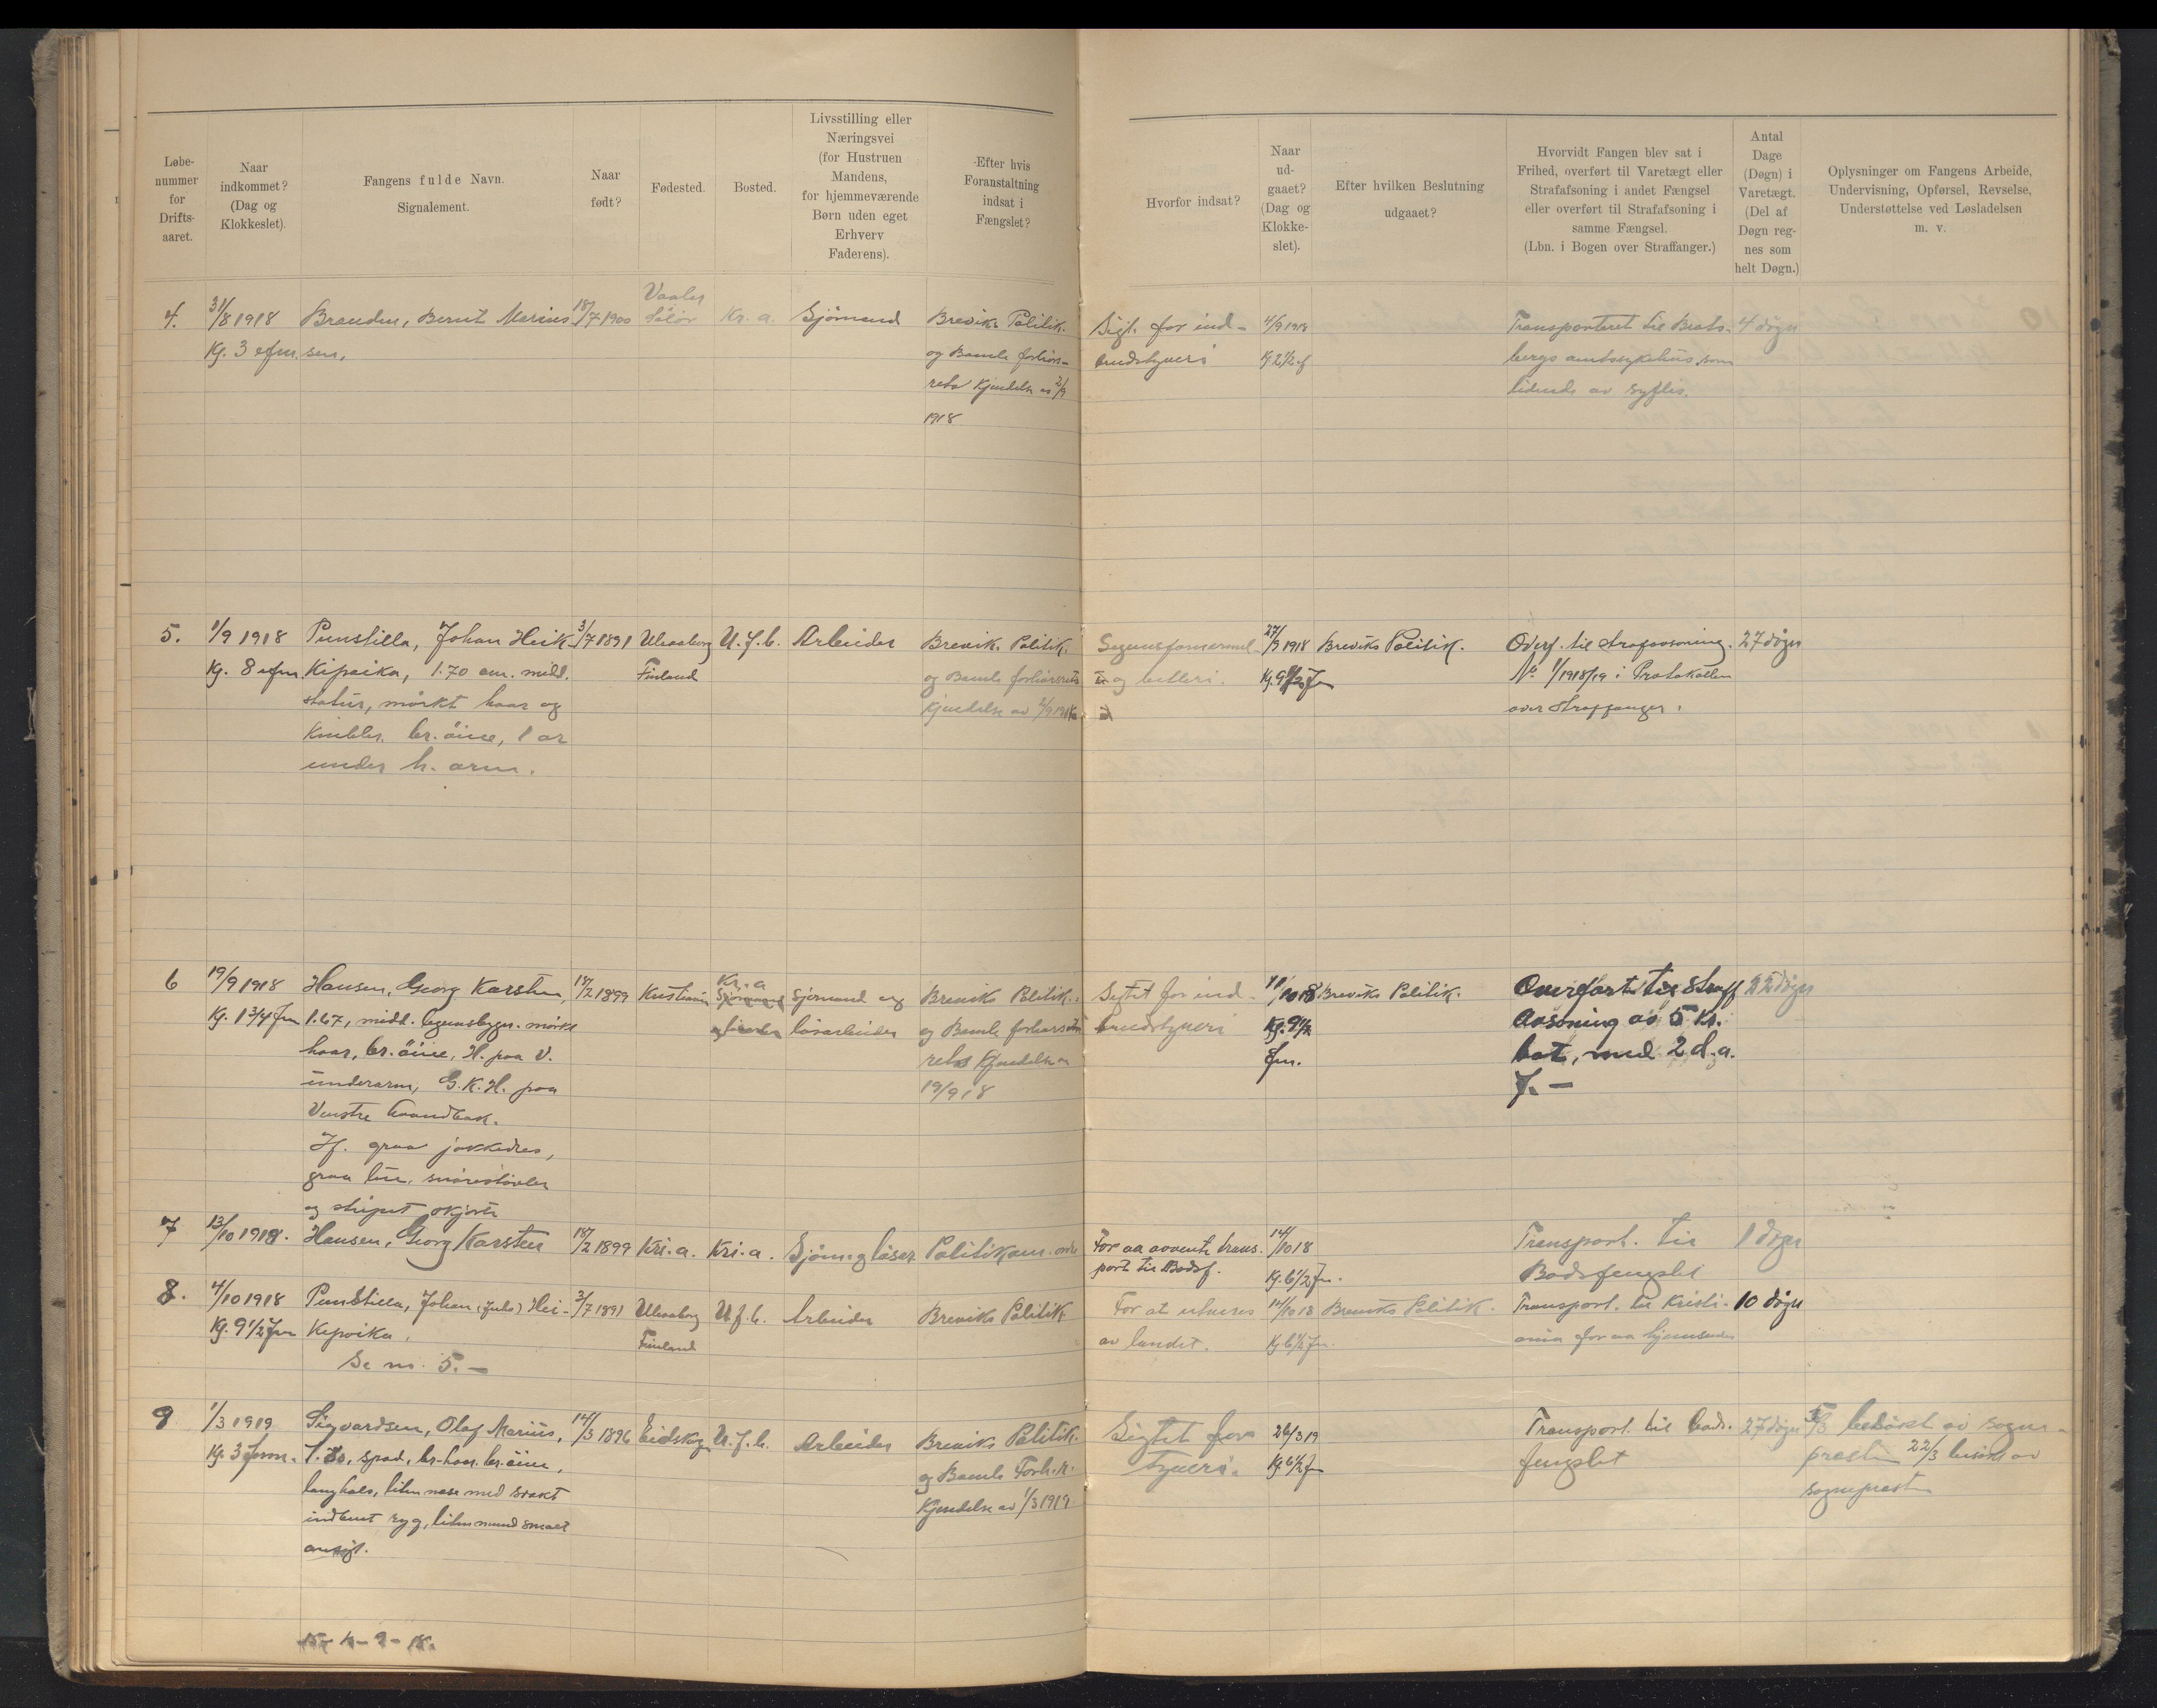 Løbe-
nummer
for
Drifts-
aaret.
Naar
indkommet?
(Dag og
Klokkeslet).
Fangens fulde Navn.
Signalement.
Naar
født?
Fødested.
Bosted.
Livsstilling eller
Næringsvei
(for Hustruen
Mandens,
for hjemmeværende
Børn uden eget
Erhverv
Faderens).
Efter hvis
Foranstaltning
indsat i
Fængslet?
Hvorfor indsat?
Naar
ud-
gaaet?
(Dag og
Klokke-
slet).
Efter hvilken Beslutning
udgaaet?
Hvorvidt Fangen blev sat i
Frihed, overført til Varetægt eller
Strafafsoning i andet Fængsel
eller overført til Strafafsoning i
samme Fængsel.
(Lbn. i Bogen over Straffanger.)
Antal
Dage
(Døgn) i
Varetægt.
(Del af
Døgn reg-
nes som
helt Døgn.)
Oplysninger om Fangens Arbeide,
Undervisning, Opførsel, Revselse,
Understøttelse ved Løsladelsen
m. v.
4.
31/8 1918
Kg. 3 efm.
Branden, Bernt Marius-
sen.
18/7 1900
Vaaler
Solør
Kr. a.
Sjömand
Breviks Politik.
og Bamle forhörs-
rets Kjendelse av 2/9
1918
Sigt. for ind-
brudstyveri
4/9 1918
Kg 2 1/2 ef
Transporteret til Brats-
bergs amtssykehus som
lidende av syflis.
4 dögn
5.
1/9 1918
Kg. 8 efm.
Punstilla, Johan Heik-
Kipaika, 1.70 cm. midd.
statur, mörkt haar og
Knibler. br. öine, 1 ar
under h. arm.
3/7 1891
Uleaaborg
Finland
U. f. b.
Arbeider
Brevik. Politik.
og Bamle forhörsrets
Kjendelse av 2/9 1918
og betleri.
27/9 1918
Kg. 9 1/2 Fm
Breviks Politik.
Overf. til Strafavsoning.
No 1/1918/19 i Protokollen
over Straffanger.
27 dögn
6
19/9 1918
Kg. 1 3/4 Fm
Hansen, Georg Karsten,
1.67, midd. legemsbygn. mörkt
haar, br. öine, H. paa V.
underarm, G.K.H. paa
Venstre haandbak.
If. graa jakkedres,
graa lue, snörestövler
og stripet skjorte
18/2 1899
Kristiania
Kr. a
Sjömand og
lösarbeider
Breviks Politik.
og Bamle forhörs
rets Kjendelse av
19/9 18
Sigtet for ind-
brudstyveri
11/10 18
Kg. 9 1/2
Fm.
Breviks Politik.
Overfört til Straff
avsoning av 5 Kr.
bot, med 2 d. a.
f. —
22 dögn
7
13/10 1918.
Hansen, Georg Karsten
18/2 1899
Kri. a.
Kri. a.
Sjöm. g löser
Politikam. ordre
For aa avvente trans-
port til Bodsf.
14/10 18
Kg. 6 1/2 Fm.
Transport. til
Bodsfengslet
1 dögn
8.
4/10 1918
Kg. 9 1/2 Fm
Punstilla, Johan (Juho) Hei-
Kepoika.
Se nr. 5. —
3/7 1891
Uleaaborg
Finland
U. f. b.
Arbeider
Breviks Politik
For at utvises
av landet.
14/10 18
Kg. 6 1/2 Fm.
Breviks Politik.
Transport. til Kristi-
ania for aa hjemsendes
10 dögn
9
1/3 1919
Kg. 3 Fmm.
Sigvardsen, Olaf Marius,
1.80, spad, br. haar. br. öine,
lang hals, liten nase med svakt
indbuet ryg, liten mund smalt
ansigt.
14/3 1896
Eidskog
U. f. b.
Arbeider
Breviks Politik.
og Bamle Forh. r.
Kjendelse av 1/3 1919.
Sigtet for
Tyveri.
26/3 19
Kg. 6 1/2 Fm
Transport. til bods-
fengslet
27 dögn
5/3 besökt av sogne-
presten 22/3 besökt av
sognepresten